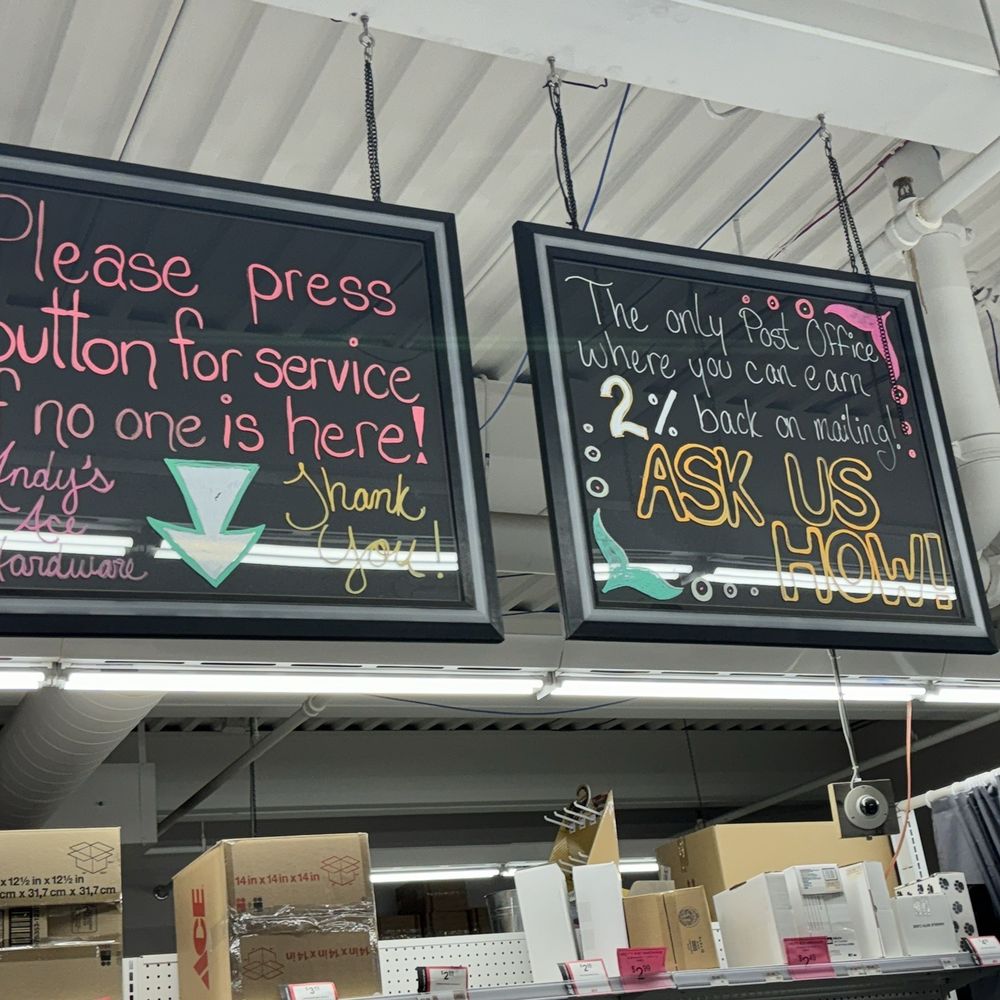 Please press
button for service
if no one is here!
Andy's
Ace
Hardware
Thank
You!
The only Post Office
where you can earn
2% back on mailing!
ASK US
HOW!
x 12½ in x 12½ in
cm x 31,7 cm x 31,7 cm
ACE
14 in x 14 in x 14 in
14 in x 14 in x 14 in